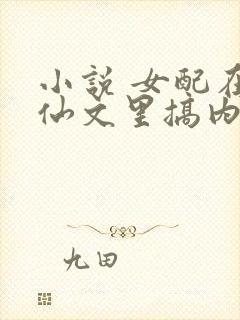 小说 女配在
仙文里搞内
九田